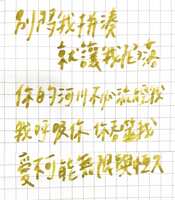 別我拼湊
就讓我落
你的河川不必流經我
我呼吸你 你我
愛不可能無限恆久